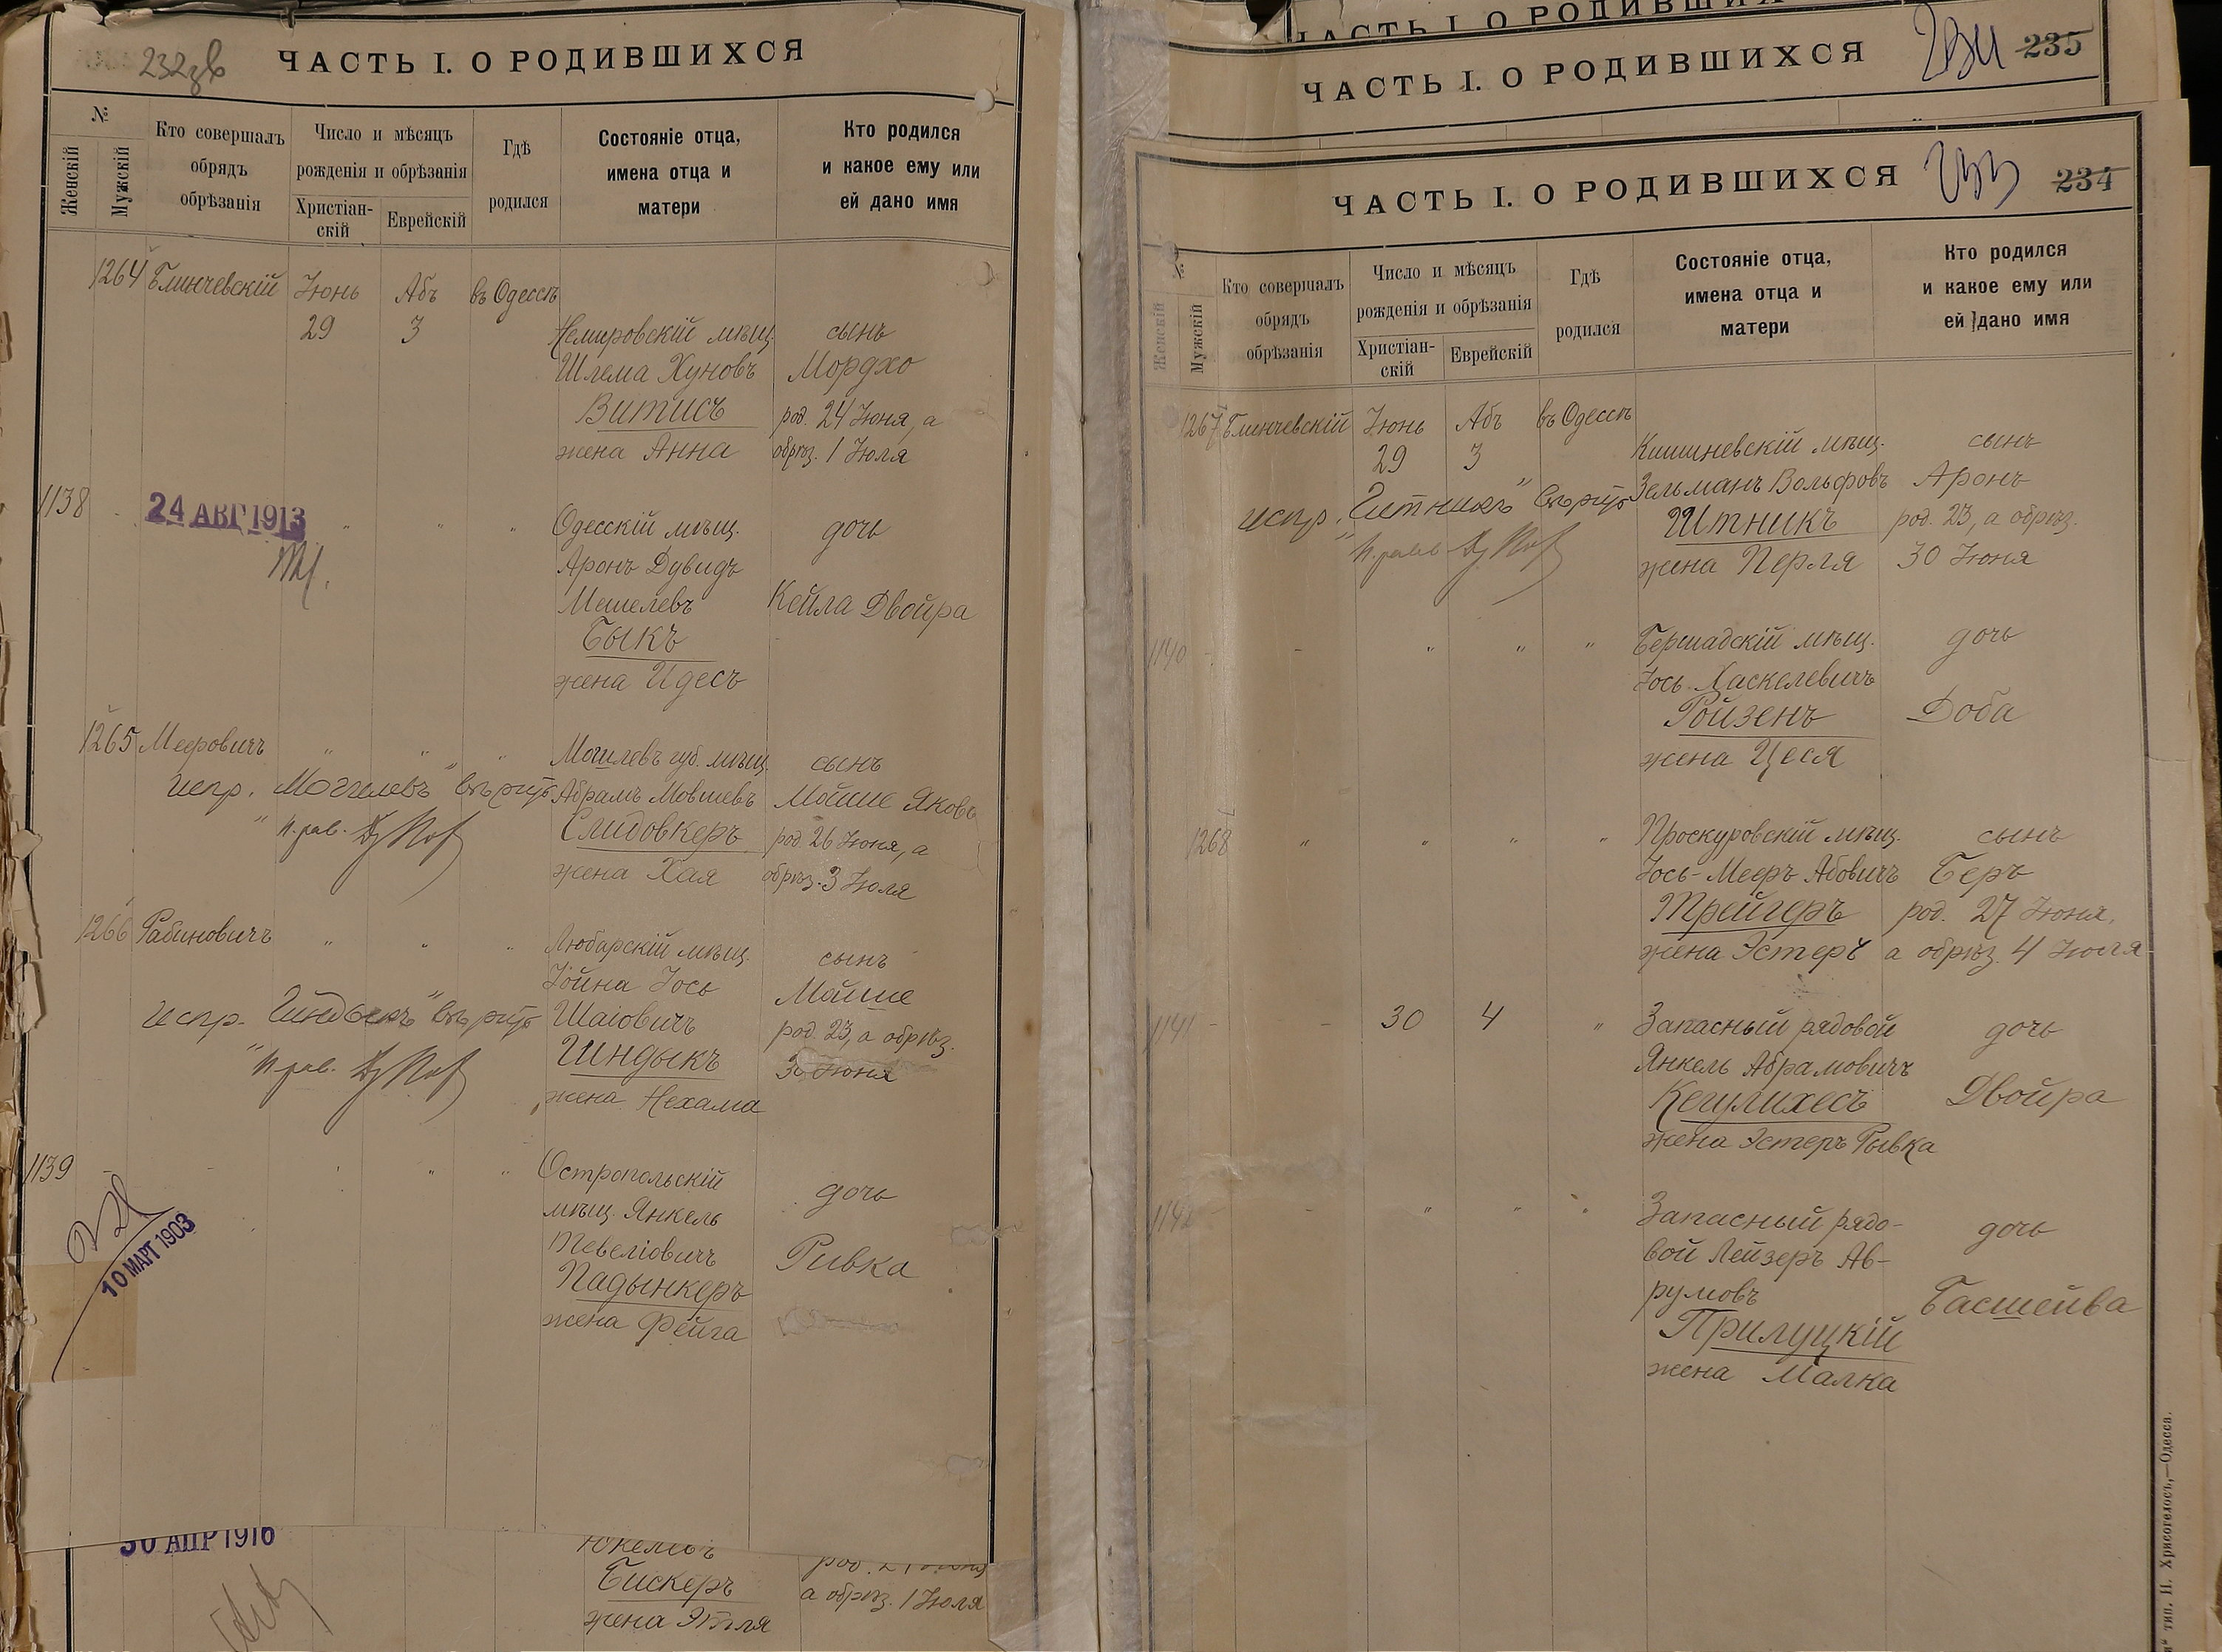 232 об
ЧАСТЬ I. О РОДИВШИХСЯ
№
Женскій
Мужскій
Кто совершалъ
обрядъ
обрѣзанія
Число и мѣсяцъ
рожденія и обрѣзанія
Христіан-
скій
Еврейскій
Гдѣ
родился
Состояніе отца,
имена отца и
матери
Кто родился
и какое ему или
ей дано имя
1264 Блинчевскій Іюнь Абъ въ Одессѣ
29 3 Немировскій мѣщ. сынъ
Шлема Хуновъ Мордхо
Витисъ род. 24 Іюня, а
жена Анна обрѣз. 1 Іюля
1138 - 24 АВГ 1913 " " " Одесскій мѣщ. дочь
Аронъ Дувидъ
Мешелевъ Кейла Двойра
Быкъ
жена Идесъ
1265 Мееровичъ " " " Могилевъ губ. мѣщ. сынъ
испр. "Могилевъ" вѣрно Абрамъ Мовшевъ Мойше Яковъ
Слидовкеръ род. 26 Іюня, а
жена Хая обрѣз. 3 Іюля
1266 Рабиновичъ " " " Любарскій мѣщ. сынъ
Іойна Іось Мойше
испр. "Шндыкъ" вѣрно Шаіовичъ род. 23, а обрѣз.
Шндыкъ 30 Іюня
жена Нехама
1139 - - " " " Остропольскій дочь
мѣщ. Янкель
Тевеліовичъ Ривка
Падынкеръ
жена Фейга
10 МАРТ 1903
30 АПР 1916
Юкелевъ
Бискеръ
а обрѣз. 1 Іюля
жена Этля
ЧАСТЬ I. О РОДИВШИХСЯ
ЧАСТЬ I. О РОДИВШИХСЯ 234 235
ЧАСТЬ I. О РОДИВШИХСЯ 233 234
№
Женскій
Мужскій
Кто совершалъ
обрядъ
обрѣзанія
Число и мѣсяцъ
рожденія и обрѣзанія
Христіан-
скій
Еврейскій
Гдѣ
родился
Состояніе отца,
имена отца и
матери
Кто родился
и какое ему или
ей дано имя
1267 Блинчевскій Іюнь Абъ въ Одессѣ
29 3 Кишиневскій мѣщ. сынъ
Зельманъ Вольфовъ Аронъ
испр. "Штникъ" вѣрно Штникъ род. 23, а обрѣз.
жена Перля 30 Іюня
1140 - - " " " Бершадскій мѣщ. дочь
Іось Хаскелевичъ
Ройзенъ Доба
жена Цеся
1268 " " " " Проскуровскій мѣщ. сынъ
Іось-Мееръ Абовичъ Беръ
Трейгеръ род. 27 Іюня,
жена Эстеръ а обрѣз. 4 Іюля
1141 - - 30 4 " Запасный рядовой дочь
Янкель Абрамовичъ
Кегулихесъ Двойра
жена Эстеръ Рывка
1142 - - " " " Запасный рядо-
вой Лейзеръ Ав- дочь
румовъ Басшейва
Прилуцкій
жена Малка
тип. Н. Хрисогелосъ,—Одесса.